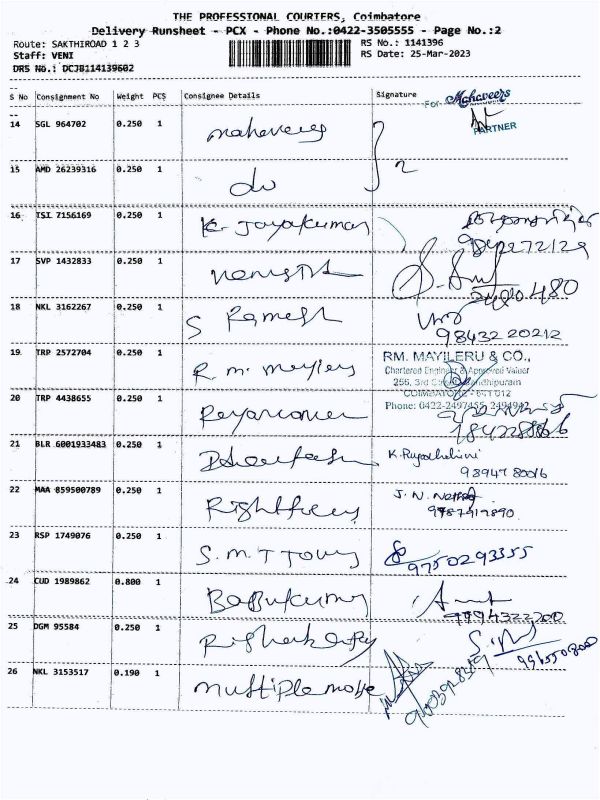 THE PROFESSIONAL COURIERS, Coimbatore
Delivery Runsheet - PCX - Phone No.:0422-3505555 - Page No.:2
Route: SAKTHIROAD 1 2 3 RS No.: 1141396
Staff: VENI RS Date: 25-Mar-2023
DRS No.: DCJB114139602
S No Consignment No Weight PCS Consignee Details Signature
For Mahaveers
PARTNER
14 SGL 964702 0.250 1 mahaveers
15 AMD 26239316 0.250 1 do 2
16 TSI 7156169 0.250 1 K. Jayakumar
17 SVP 1432833 0.250 1
18 NKL 3162267 0.250 1 S Ramesh
98432 20212
19 TRP 2572704 0.250 1 R. m.
RM. MAYILERU & CO.,
Chartered Engineer & Approved Valuer
256, 3rd Gandhipuram
COIMBATORE - 641 012
Phone: 0422-2497455, 2494942
20 TRP 4438655 0.250 1
21 BLR 6001933483 0.250 1
98947 80016
22 MAA 859500789 0.250 1
J. N.
23 RSP 1749076 0.250 1 S. M. T Towy
9750293355
24 CUD 1989862 0.800 1 Babukumar
9994322200
25 DGM 95584 0.250 1
26 NKL 3153517 0.190 1 multiple move